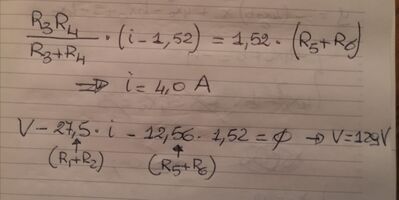 R3R4
/ R3+R4 · (i-1,52) = 1,52 · (R5+R6)
⇒ i = 4,0 A
V - 27,5 · i - 12,56 · 1,52 = ∅ → V=129V
↑ ↑
(R1+R2) (R5+R6)